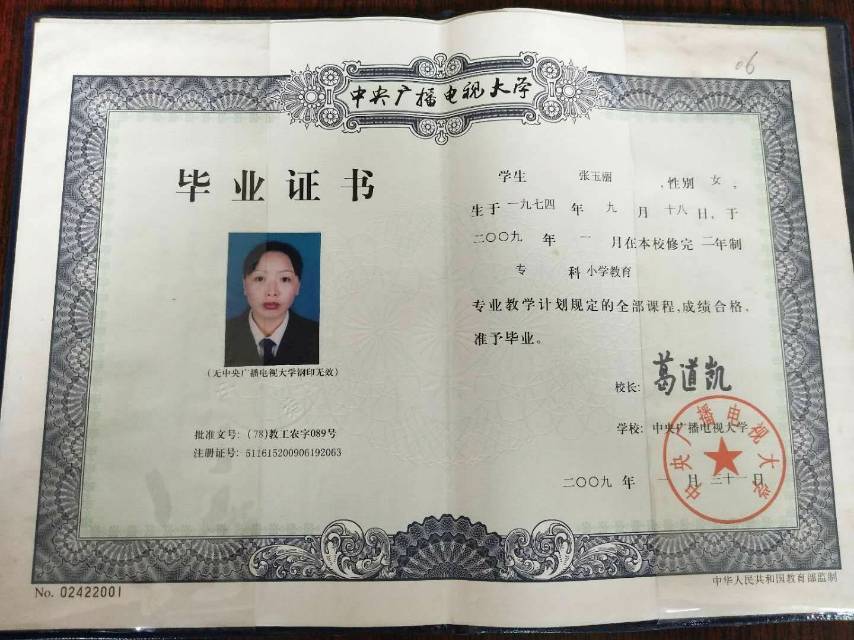 06
中央广播电视大学
毕业证书
(无中央广播电视大学钢印无效)
批准文号: (78)教工农字089号
注册证号: 511615200906192063
No. 02422001
学生 张玉丽 ,性别 女 ,
生于 一九七四 年 九 月 十八 日,于
二〇〇九 年 一 月在本校修完 二年制
专 科 小学教育
专业教学计划规定的全部课程,成绩合格,
准予毕业。
校长: 葛道凯
学校: 中央广播电视大学
二〇〇九 年 一 月 三十一 日
中央广播电视大学
中华人民共和国教育部监制